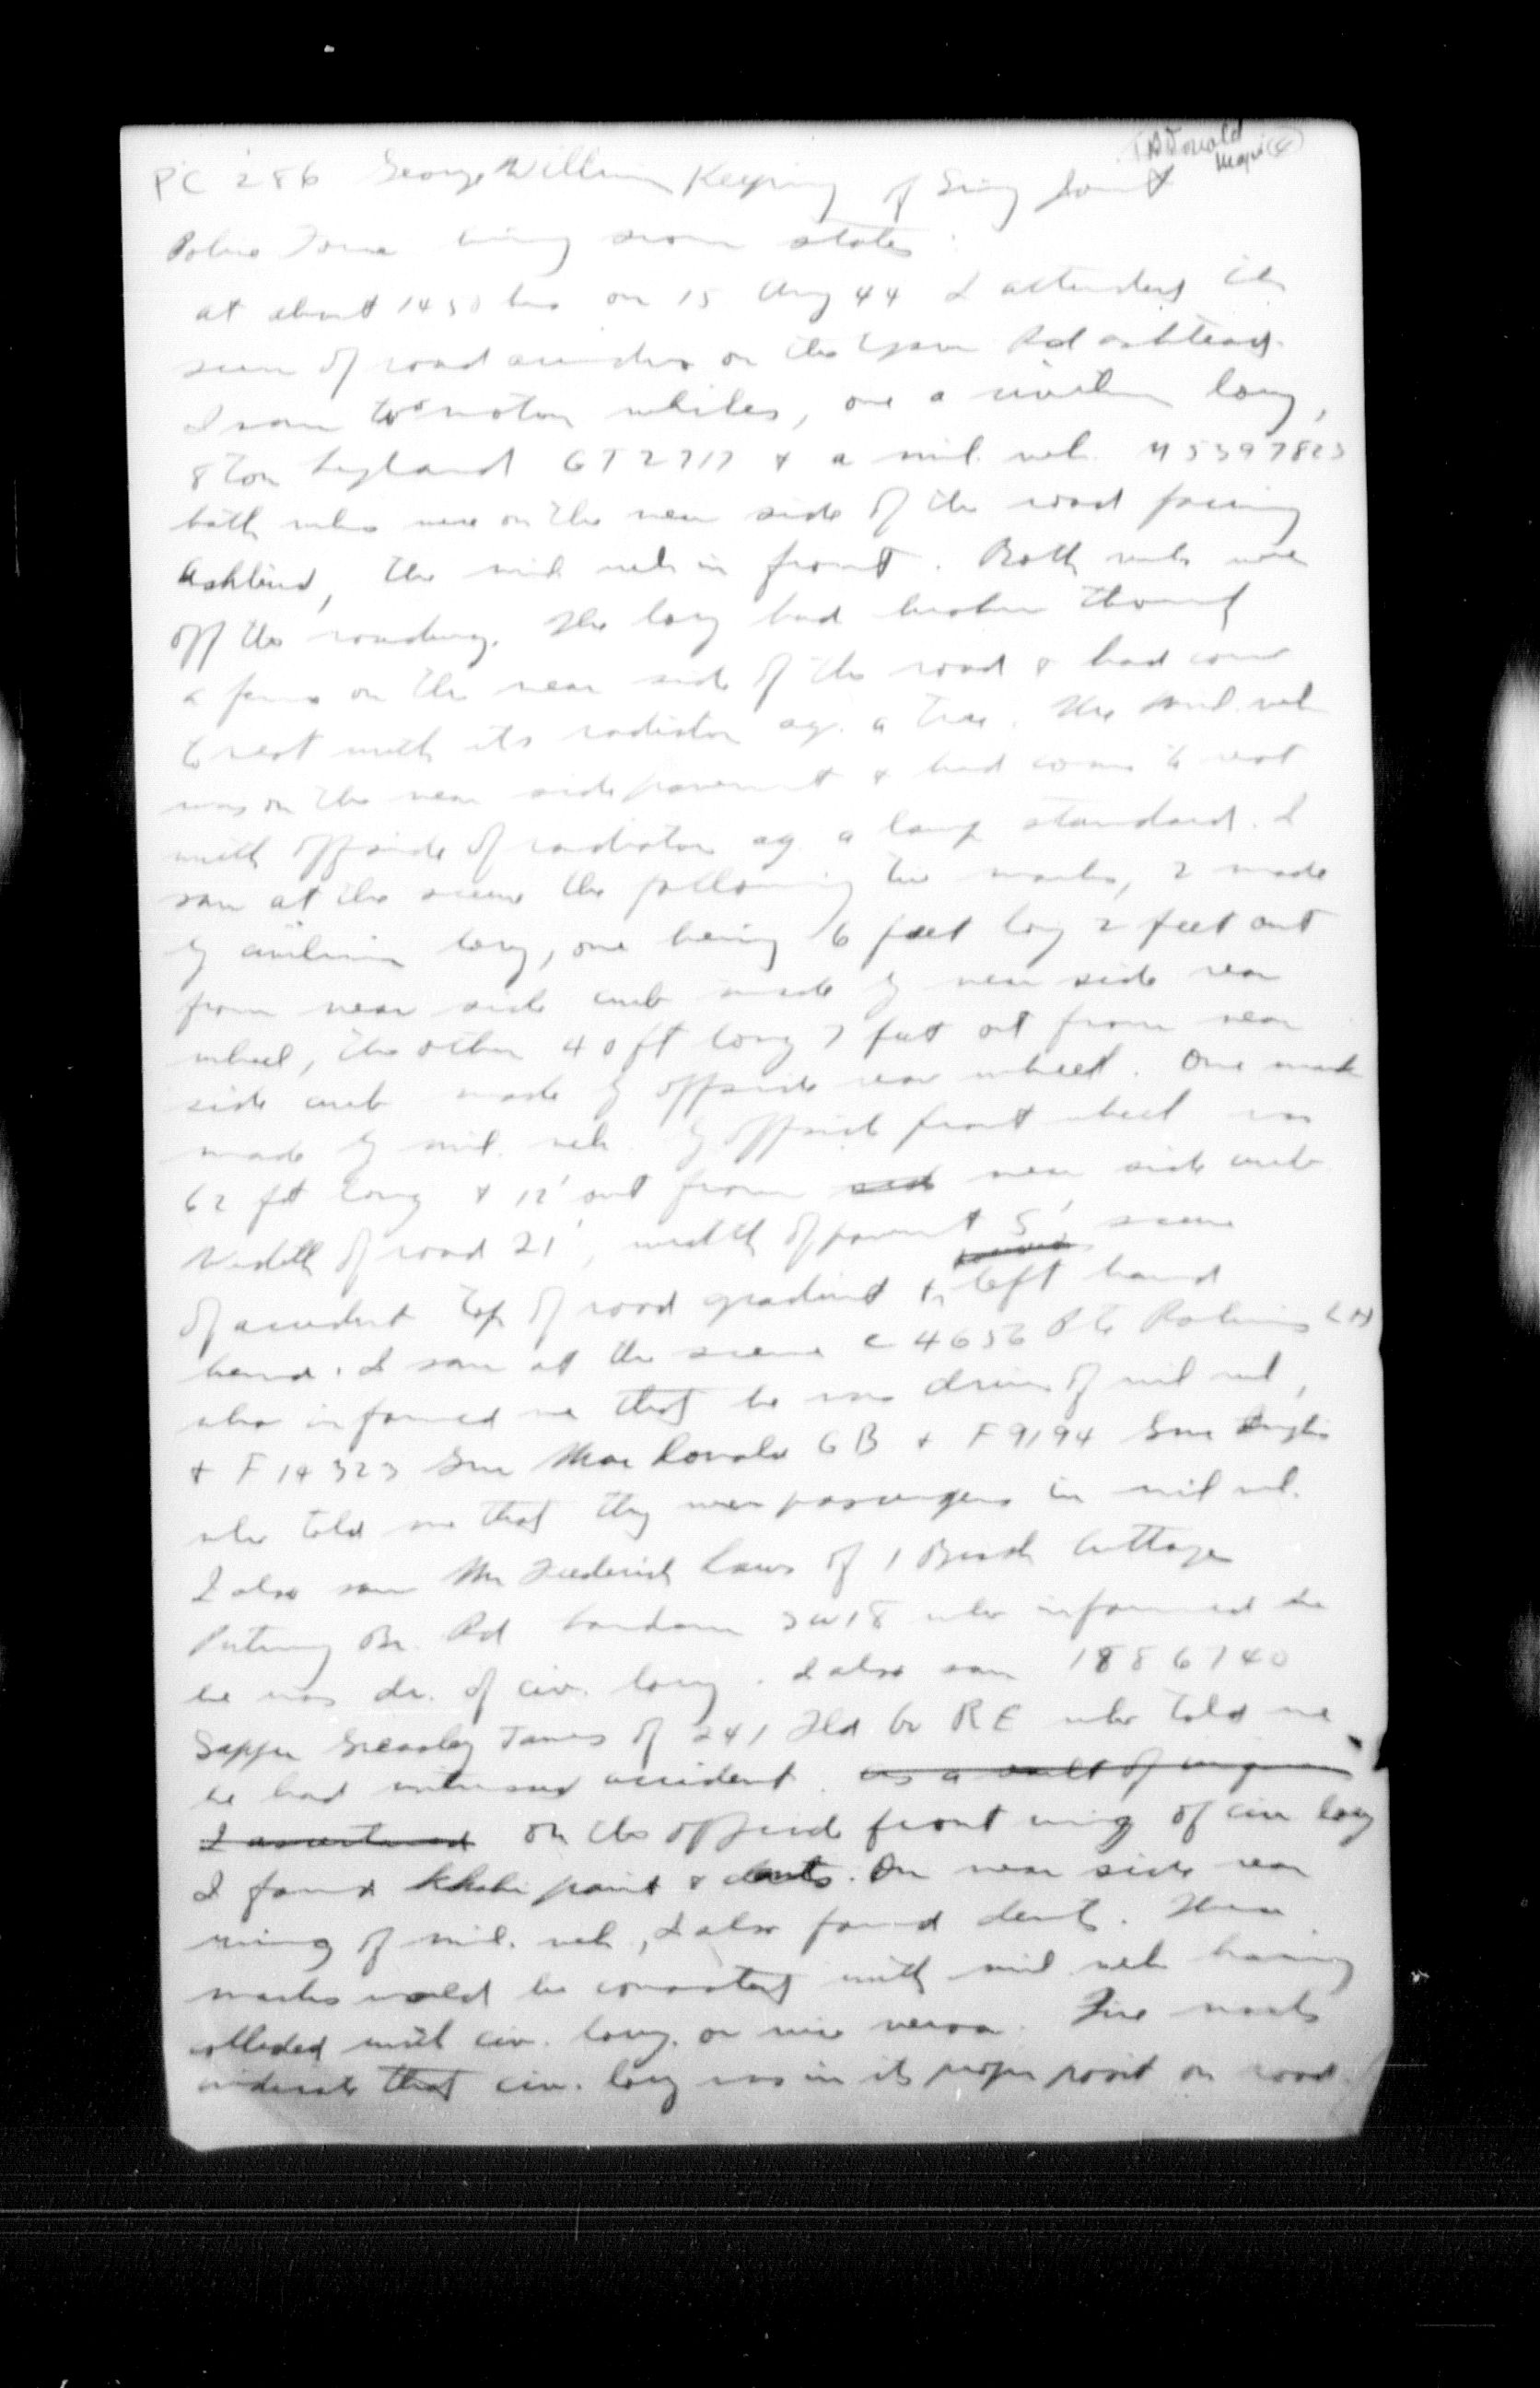 TADonald
Major (4)
PC 286 George William Keeping of Joint
Police Force being sworn states:
at about 1430 hrs on 15 Aug 44 I attended the
scene of road accident on the Epsom Rd Ashtead.
I saw two motor vehicles, one a civilian lorry,
8 Ton Leyland GT 2717 & a mil. veh. M5397823
both vehs were on the near side of the road facing
Ashtead, the mil veh in front. Both vehs were
off the roadway. The lorry had broken through
a fence on the near side of the road & had come
to rest with its radiator ag. a tree. The mil. veh
was on the near side pavement & had come to rest
with offside of radiator ag. a lamp standard. I
saw at the scene the following tire marks, 2 made
by civilian lorry, one being 6 feet long 2 feet out
from near side curb made by near side rear
wheel, the other 40 ft long 7 feet out from near
side curb made by offside rear wheel. One mark
made by mil. veh. by offside front wheel was
62 ft long & 12' out from side near side curb
Width of road 21', width of pavement 5', scene
of accident top of road gradient & left hand
bend. I saw at the scene C 4656 Pte Robins
who informed me that he was driver of mil veh,
& F 14323 Gnr MacDonald GB & F 9194 Gnr
who told me that they were passengers in mil veh.
I also saw Mr Frederick Laws of 1 Cottages
Putney Br. Rd London SW18 who informed me
he was dr. of civ. lorry. I also saw 1886740
Sapper Greasley James of 241 Fld Co RE who told me
he had witnessed accident. As a result of enquiries
I ascertained On the offside front wing of civ lorry
I found khaki paint & dents. On near side rear
wing of mil. veh, I also found dents. These
marks would be consistent with mil veh having
collided with civ. lorry. or vice versa. Tire marks
indicate that civ. lorry was in its proper point on road.